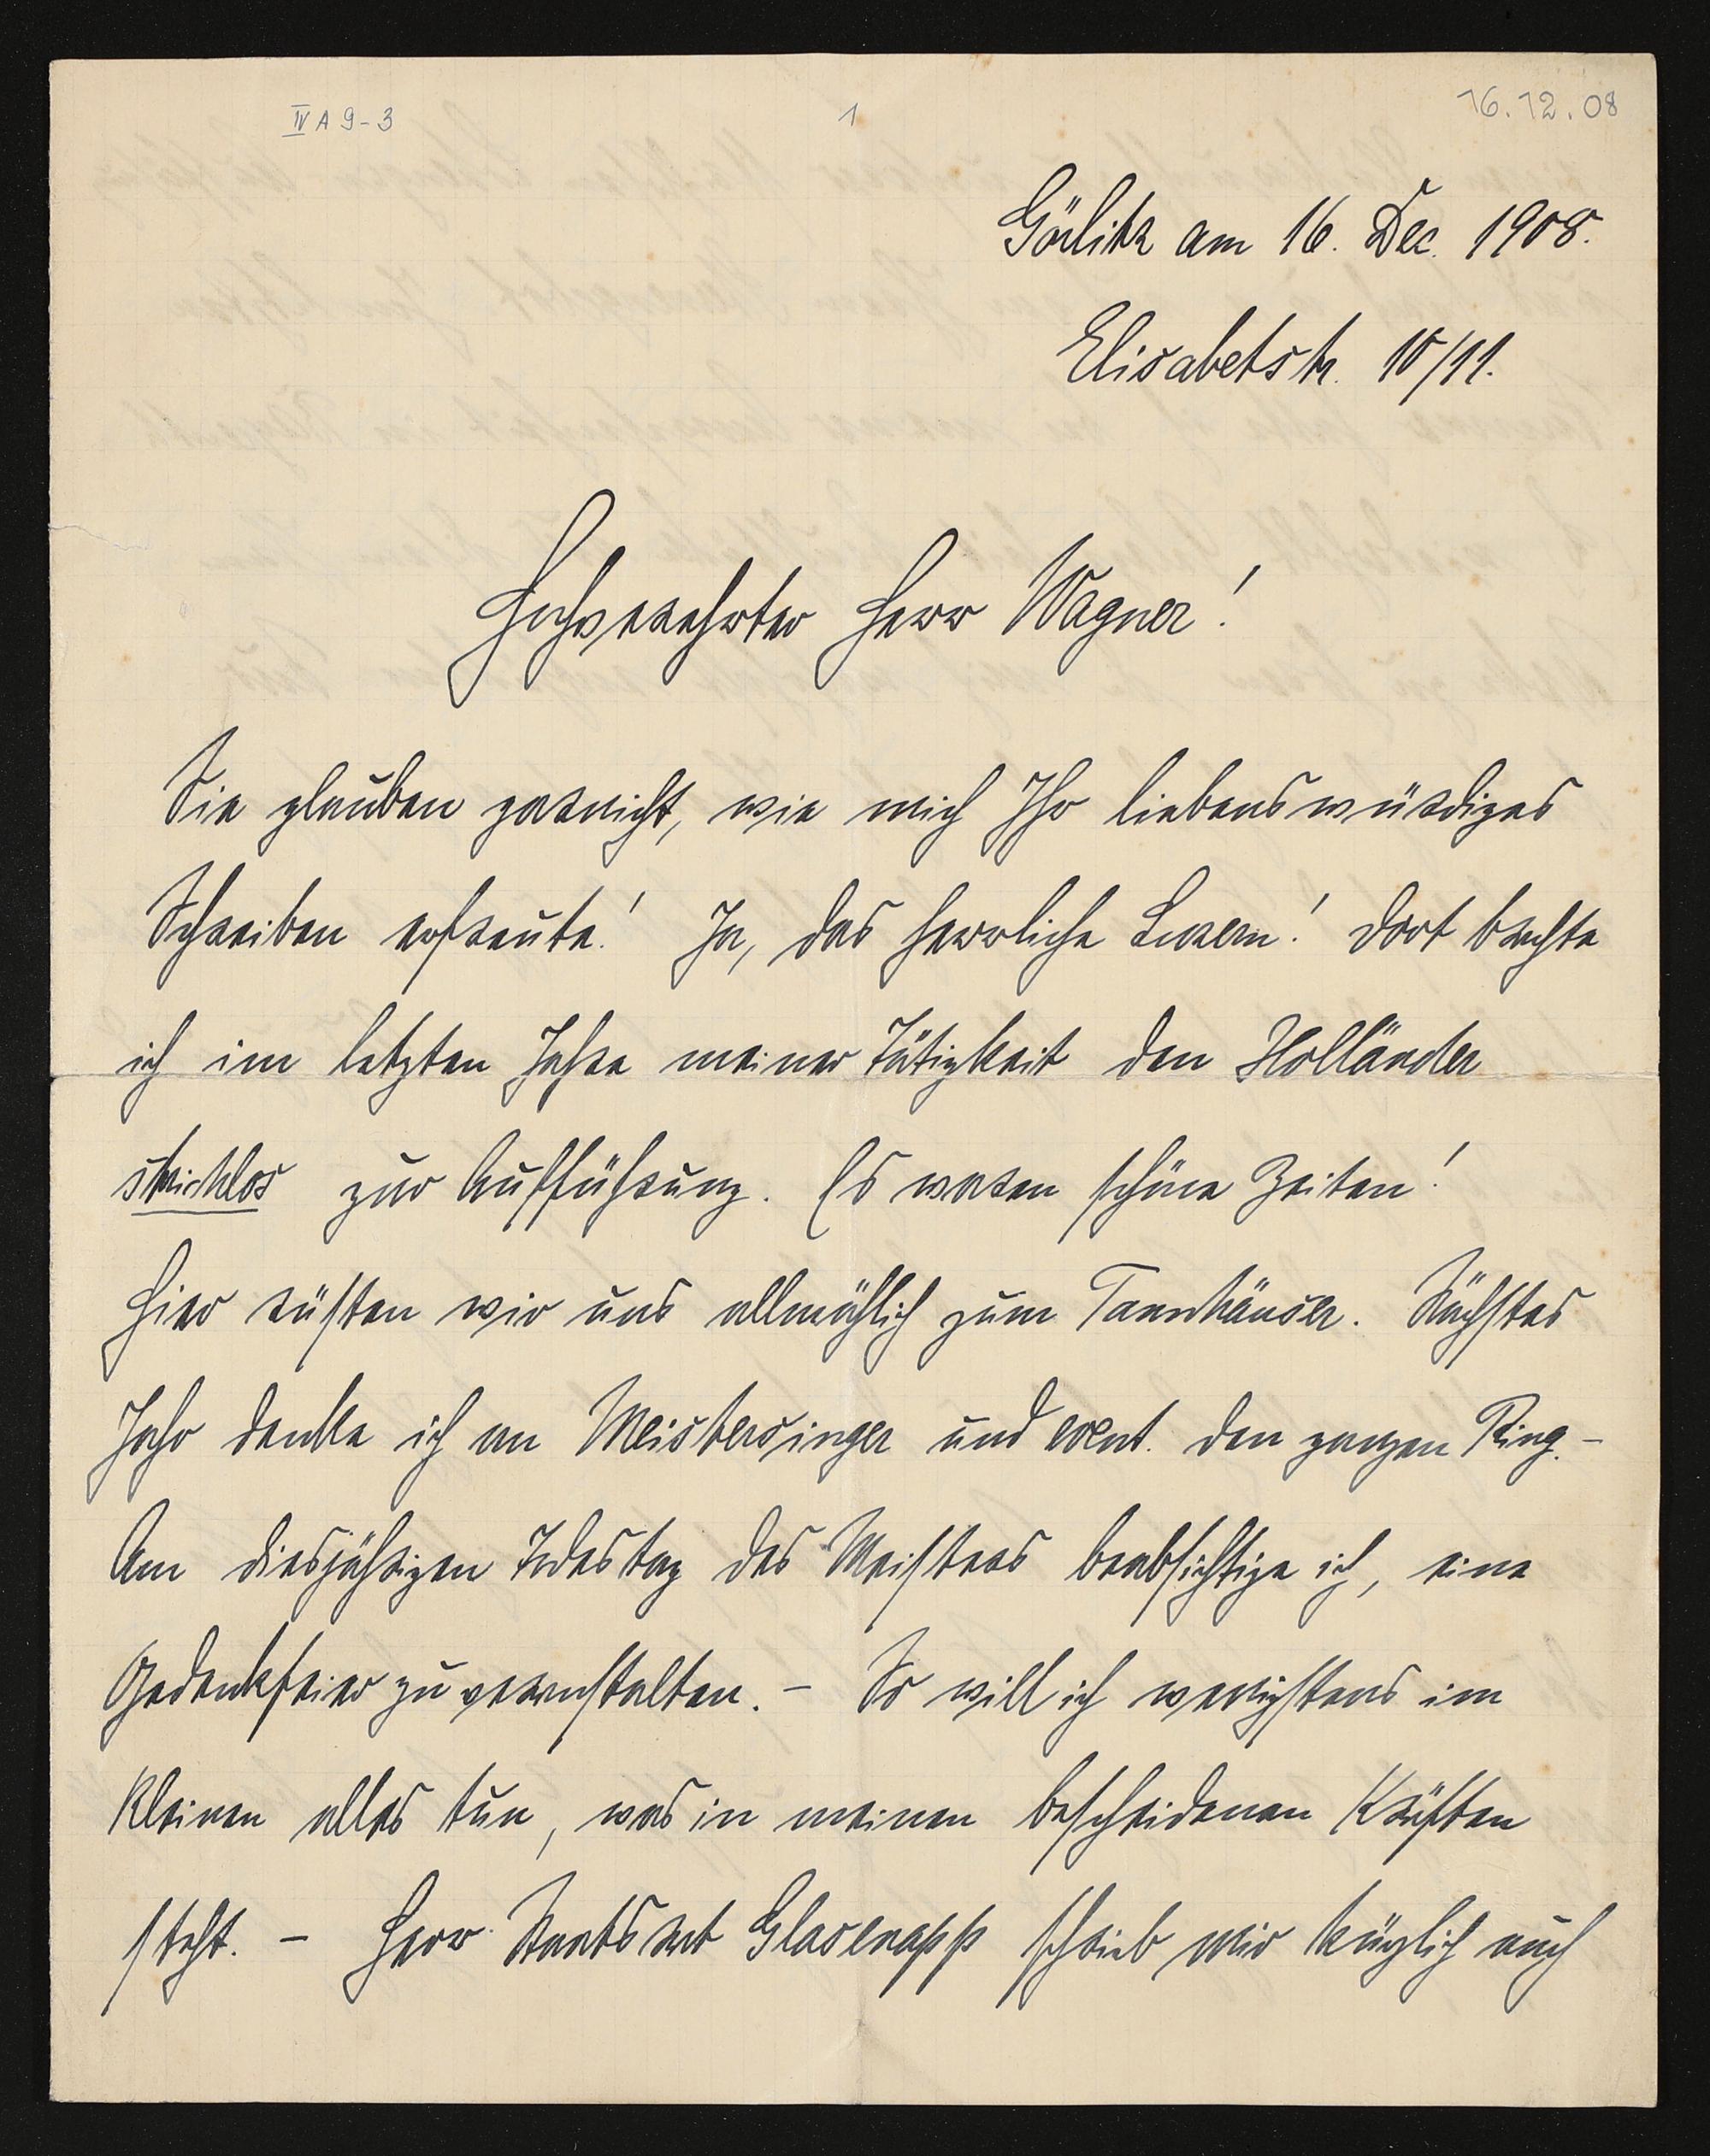 IV A 9-3
1
16.12.08
Görlitz am 16. Dec. 1908.
Elisabetstr. 10/11.
Hochverehrter Herr Wagner!
Sie glauben garnicht, wie mich Ihr liebenswürdiges
Schreiben erfreute! Ja, das herrliche Luzern! Dort brachte
ich im letzten Jahre meiner Tätigkeit den Holländer
strichlos zur Aufführung. Es waren schöne Zeiten!
Hier rüsten wir uns allmählich zum Tannhäuser. Nächstes
Jahr denke ich an Meistersinger und event. den ganzen Ring. –
Am diesjährigen Todestag des Meisters beabsichtige ich, eine
Gedenkfeier zu veranstalten. – So will ich wenigstens im
Kleinen alles tun, was in meinen bescheidenen Kräften
steht. – Herr Staatsrat Glasenapp schrieb mir kürzlich auch